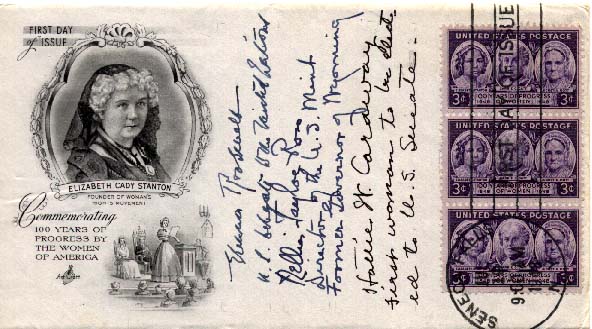 FIRST DAY
of ISSUE
ELIZABETH CADY STANTON
FOUNDER OF WOMAN'S
RIGHTS MOVEMENT
Commemorating
100 YEARS OF
PROGRESS BY
THE WOMEN
OF AMERICA
ArtCraft
Eleanor Roosevelt
U.S. Delegate to the United Nations
Nellie Tayloe Ross
Director of the U.S. Mint
Former Governor of Wyoming
Hattie W. Caraway
first woman to be elect-
ed to U.S. Senate.
UNITED STATES POSTAGE
100 YEARS OF PROGRESS
OF WOMEN
1848 1948
3¢ 3¢
UNITED STATES POSTAGE
100 YEARS OF PROGRESS
OF WOMEN
1848 1948
3¢ 3¢
UNITED STATES POSTAGE
3¢ 3¢
FIRST DAY OF ISSUE
SENECA